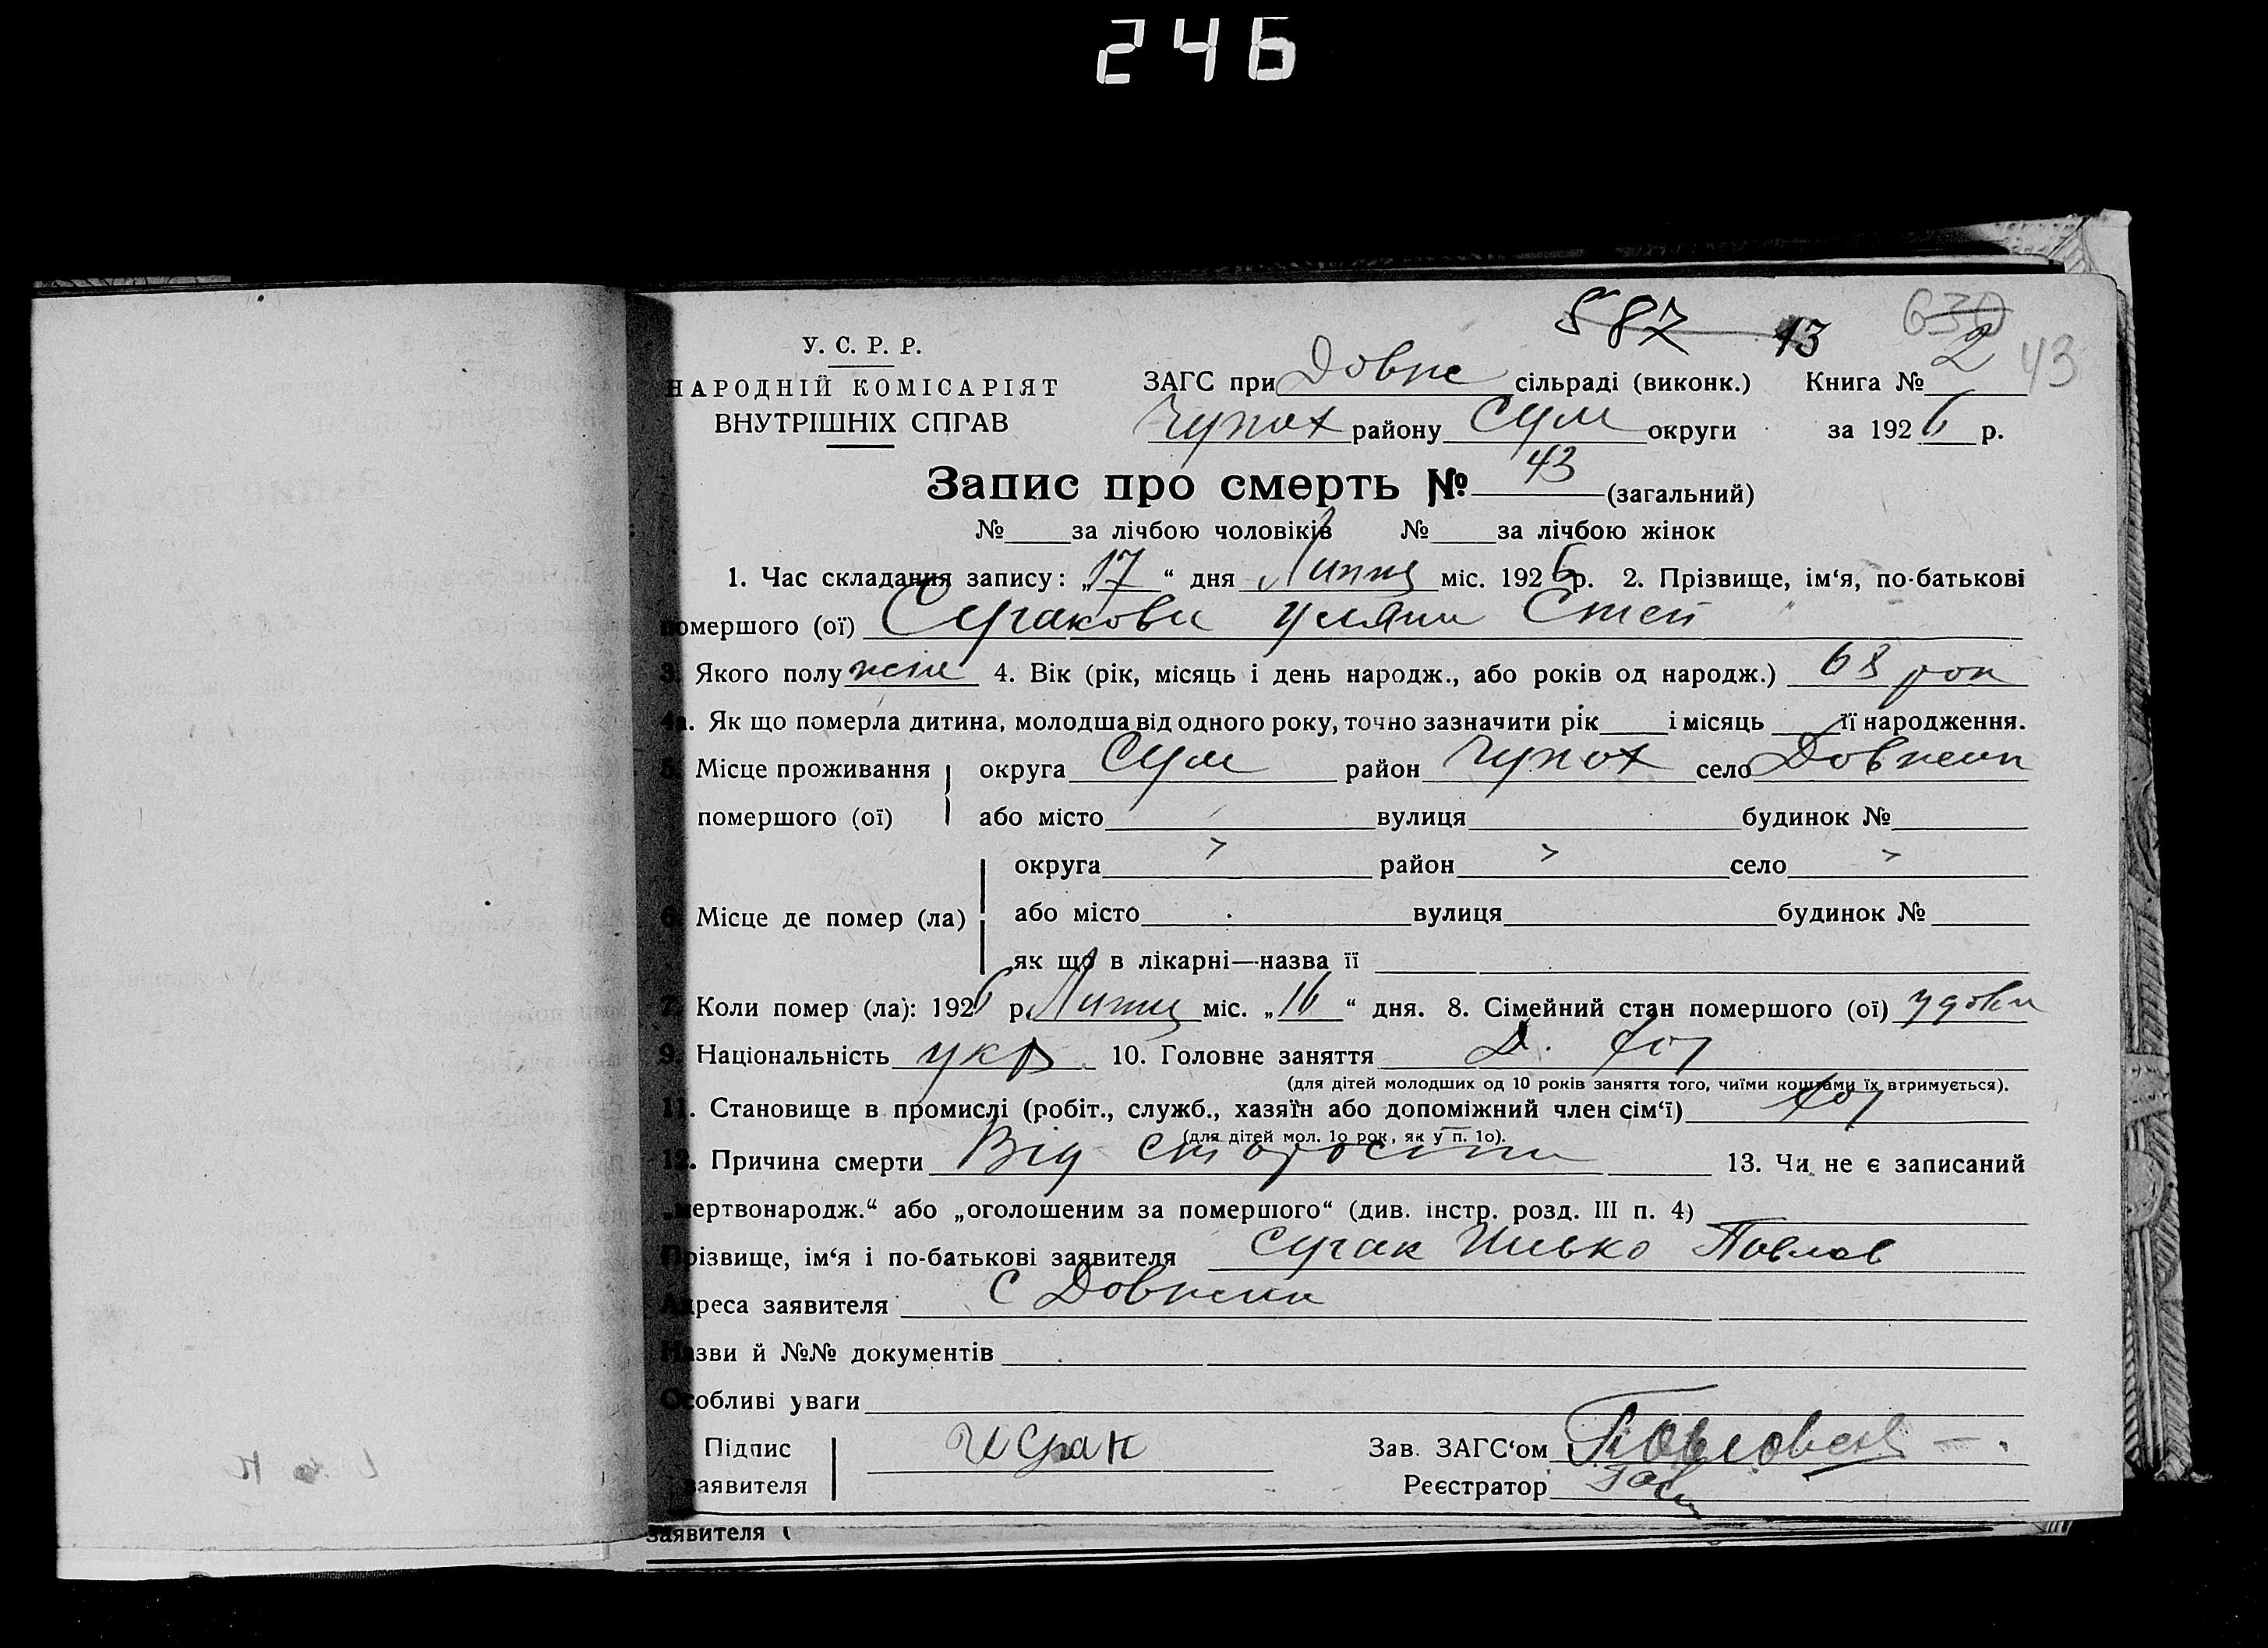 246
587 13 630
У. С. Р. Р.
НАРОДНІЙ КОМІСАРІЯТ
ВНУТРІШНІХ СПРАВ
ЗАГС при Довже сільраді (виконк.) Книга № 2 43
Чупах району Сум округи за 1926 р.
Запис про смерть № 43 (загальний)
№ за лічбою чоловіків № за лічбою жінок
1. Час складання запису: „17“ дня Липня міс. 1926 р. 2. Прізвище, ім‘я, по-батькові
помершого (ої) Сугакова Уляни Степ
3. Якого полу жін 4. Вік (рік, місяць і день народж., або років од народж.) 68 рок
4а. Як що померла дитина, молодша від одного року, точно зазначити рік і місяць її народження.
5. Місце проживання округа Сум район Чупах село Довжик
помершого (ої) або місто вулиця будинок №
округа " район " село "
6. Місце де помер (ла) або місто вулиця будинок №
як що в лікарні—назва її
7. Коли помер (ла): 1926 р. Липня міс. „16“ дня. 8. Сімейний стан помершого (ої) удова
9. Національність укр. 10. Головне заняття
(для дітей молодших од 10 років заняття того, чиїми коштами їх втримується).
11. Становище в промислі (робіт., служб., хазяїн або допоміжний член сім‘ї)
(для дітей мол. 1о рок, як у п. 1о).
12. Причина смерти Від старости 13. Чи не є записаний
„мертвонародж.“ або „оголошеним за помершого“ (див. інстр. розд. III п. 4)
Прізвище, ім‘я і по-батькові заявителя Сугак Илько Павлов
Адреса заявителя С Довжик
Назви й №№ документів
Особливі уваги
Підпис И Сугак Зав. ЗАГС‘ом
заявителя Реєстратор
заявителя (